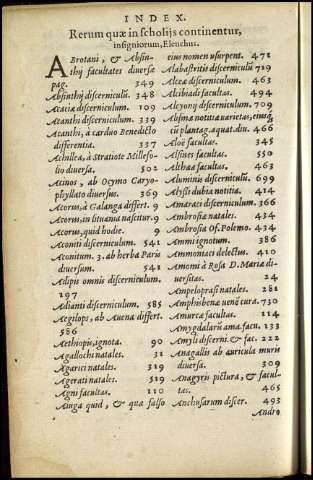 INDEX.
Rerum quæ in scholijs continentur,
insigniorum, Elenchus.
ABrotani, & Absin-
thij facultates diuersa
pag. 349
Absinthij discerniculū. 348
Acaciæ discerniculum. 109
Acanthi discerniculum. 339
Acanthi, à carduo Benedicto
differentia. 337
Achillea, à Stratiote Millefo-
lio diuersa. 502
Acinos, ab Ocymo Caryo-
phyllato diuersus. 369
Acorus, à Galanga differt. 9
Acorus, in lituania nascitur. 9
Acorus, quid hodie. 9
Aconiti discerniculum. 541
Aconitum. 3. ab herba Paris
diuersum. 541
Adipis omnis discerniculum.
197
Adianti discerniculum. 585
Aegilops, ab Auena differt.
586
Aethiopis, ignota. 90
Agallochi natales. 31
Agarici natales. 319
Agerati natales. 519
Agni facultas. 110
Aiuga quid, & quæ falso
eius nomen usurpent. 472
Alabastritis discerniculū 729
Alceæ discerniculum. 463
Alcibiadi facultas. 494
Alcyonij discerniculum. 709
Alismæ notitiæ varietas, eiusq;
cū plantag. aquat. diu. 466
Aloë facultas. 345
Alsines facultas. 550
Althææ facultas. 463
Aluminis discerniculū. 699
Alyssi dubia notitia. 414
Amaraci discerniculum. 366
Ambrosia natales. 434
Ambrosia Of. Polemo. 434
Ammi ignotum. 386
Ammoniaci delectus. 410
Amomi à Rosa D. Mariæ di-
uersitas. 24
Ampeloprasi natales. 281
Amphisbenæ uenē cura. 730
Amurcæ facultas. 114
Amygdalarū ama. facu. 133
Amyli discerni. & fac. 222
Anagallis ab auricula muris
diuersa. 309
Anagyris pictura, & facul-
tas. 465.
Anchusarum discer. 493
Andro